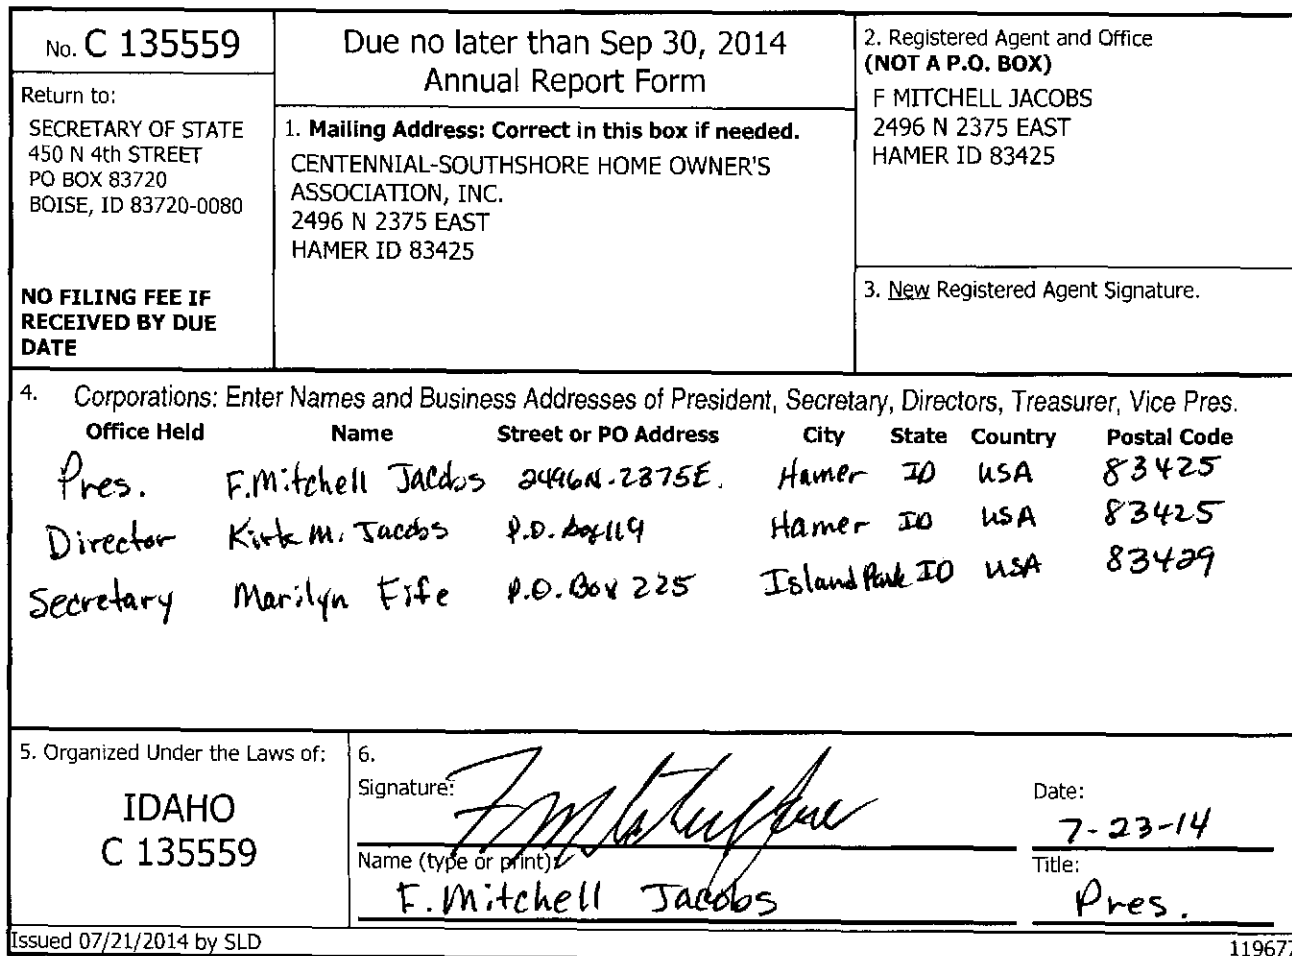 No. C 135559
Return to:
SECRETARY OF STATE
450 N 4th STREET
PO BOX 83720
BOISE, ID 83720-0080
NO FILING FEE IF
RECEIVED BY DUE
DATE
Due no later than Sep 30, 2014
Annual Report Form
1. Mailing Address: Correct in this box if needed.
CENTENNIAL-SOUTHSHORE HOME OWNER'S
ASSOCIATION, INC.
2496 N 2375 EAST
HAMER ID 83425
2. Registered Agent and Office
(NOT A P.O. BOX)
F MITCHELL JACOBS
2496 N 2375 EAST
HAMER ID 83425
3. New Registered Agent Signature.
4. Corporations: Enter Names and Business Addresses of President, Secretary, Directors, Treasurer, Vice Pres.
Office Held Name Street or PO Address City State Country Postal Code
Pres. F. Mitchell Jacobs 2496 N. 2375 E. Hamer ID USA 83425
Director Kirk M. Jacobs P.O. Box 119 Hamer ID USA 83425
Secretary Marilyn Fife P.O. Box 225 Island Park ID USA 83429
5. Organized Under the Laws of:
IDAHO
C 135559
6.
Signature:
Date:
7-23-14
Name (type or print):
F. Mitchell Jacobs
Title:
Pres.
Issued 07/21/2014 by SLD
119677